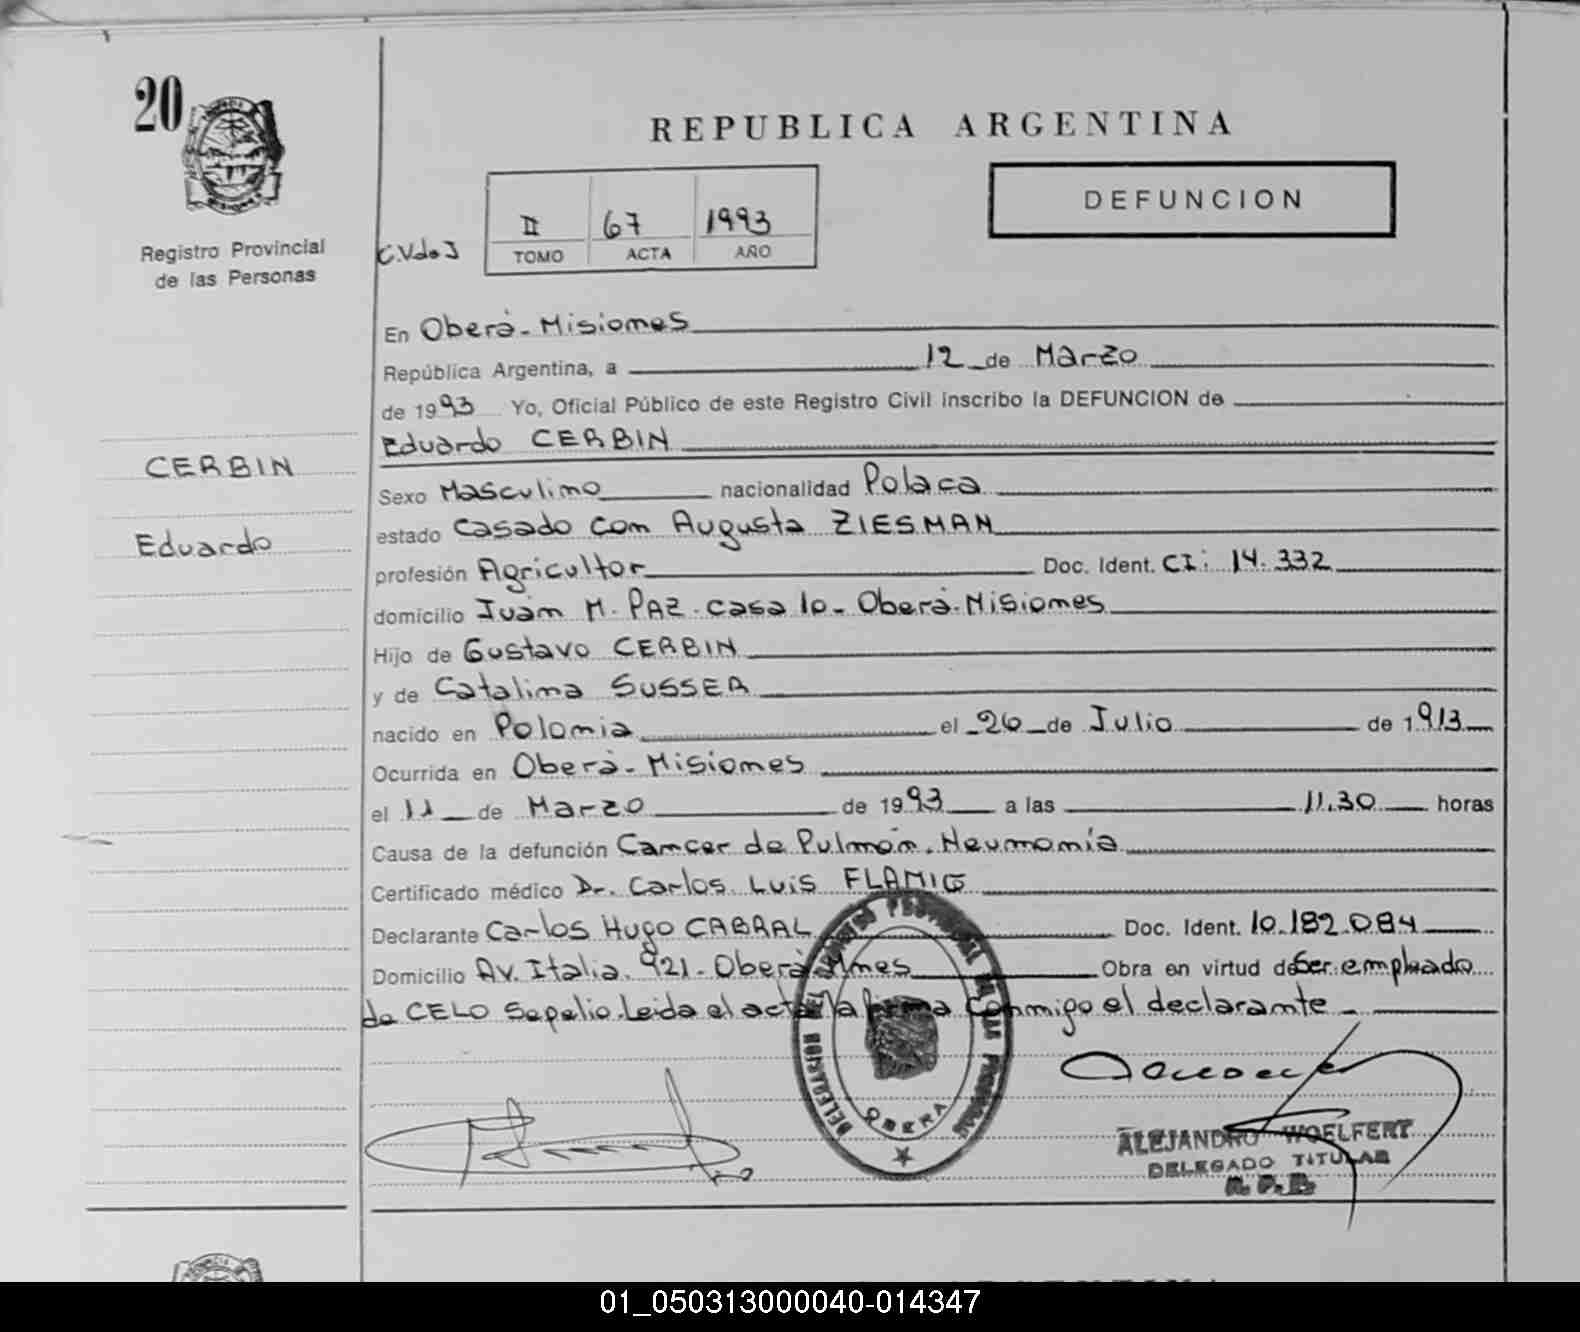 20
REPUBLICA ARGENTINA
DEFUNCION
II 67 1993
TOMO ACTA AÑO
C.V.de J
Registro Provincial
de las Personas
CERBIN
Eduardo
En Oberá - Misiones
República Argentina, a 12 de Marzo
de 1993 Yo, Oficial Público de este Registro Civil inscribo la DEFUNCION de
Eduardo CERBIN
Sexo Masculino nacionalidad Polaca
estado Casado con Augusta ZIESMAN
profesión Agricultor Doc. Ident. CI: 14.332
domicilio Juan M. PAZ. casa 10- Oberá-Misiones
Hijo de Gustavo CERBIN
y de Catalina SUSSER
nacido en Polonia el 26 de Julio de 1913
Ocurrida en Oberá - Misiones
el 11 de Marzo de 1993 a las 11.30 horas
Causa de la defunción Cancer de Pulmón. Neumonía
Certificado médico Dr. Carlos Luis
Declarante Carlos Hugo CABRAL Doc. Ident. 10.182.084
Domicilio Av. Italia. 921- Oberá Mnes Obra en virtud de Ser empleado
de CELO Sepelio. Leida el acta la firma conmigo el declarante
DELEGACION DEL REGISTRO PROVINCIAL DE LAS PERSONAS
OBERA
ALEJANDRO WOELFERT
DELEGADO TITULAR
R. P. P.
01_050313000040-014347